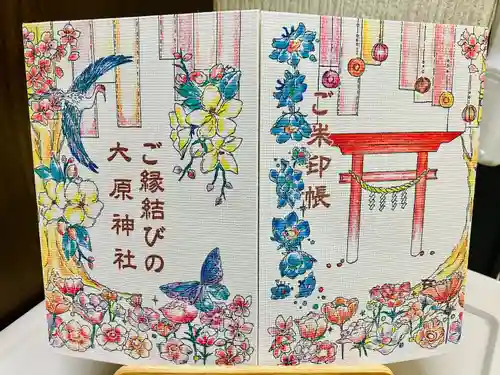 ご米印帳
ご縁結びの
大原神社